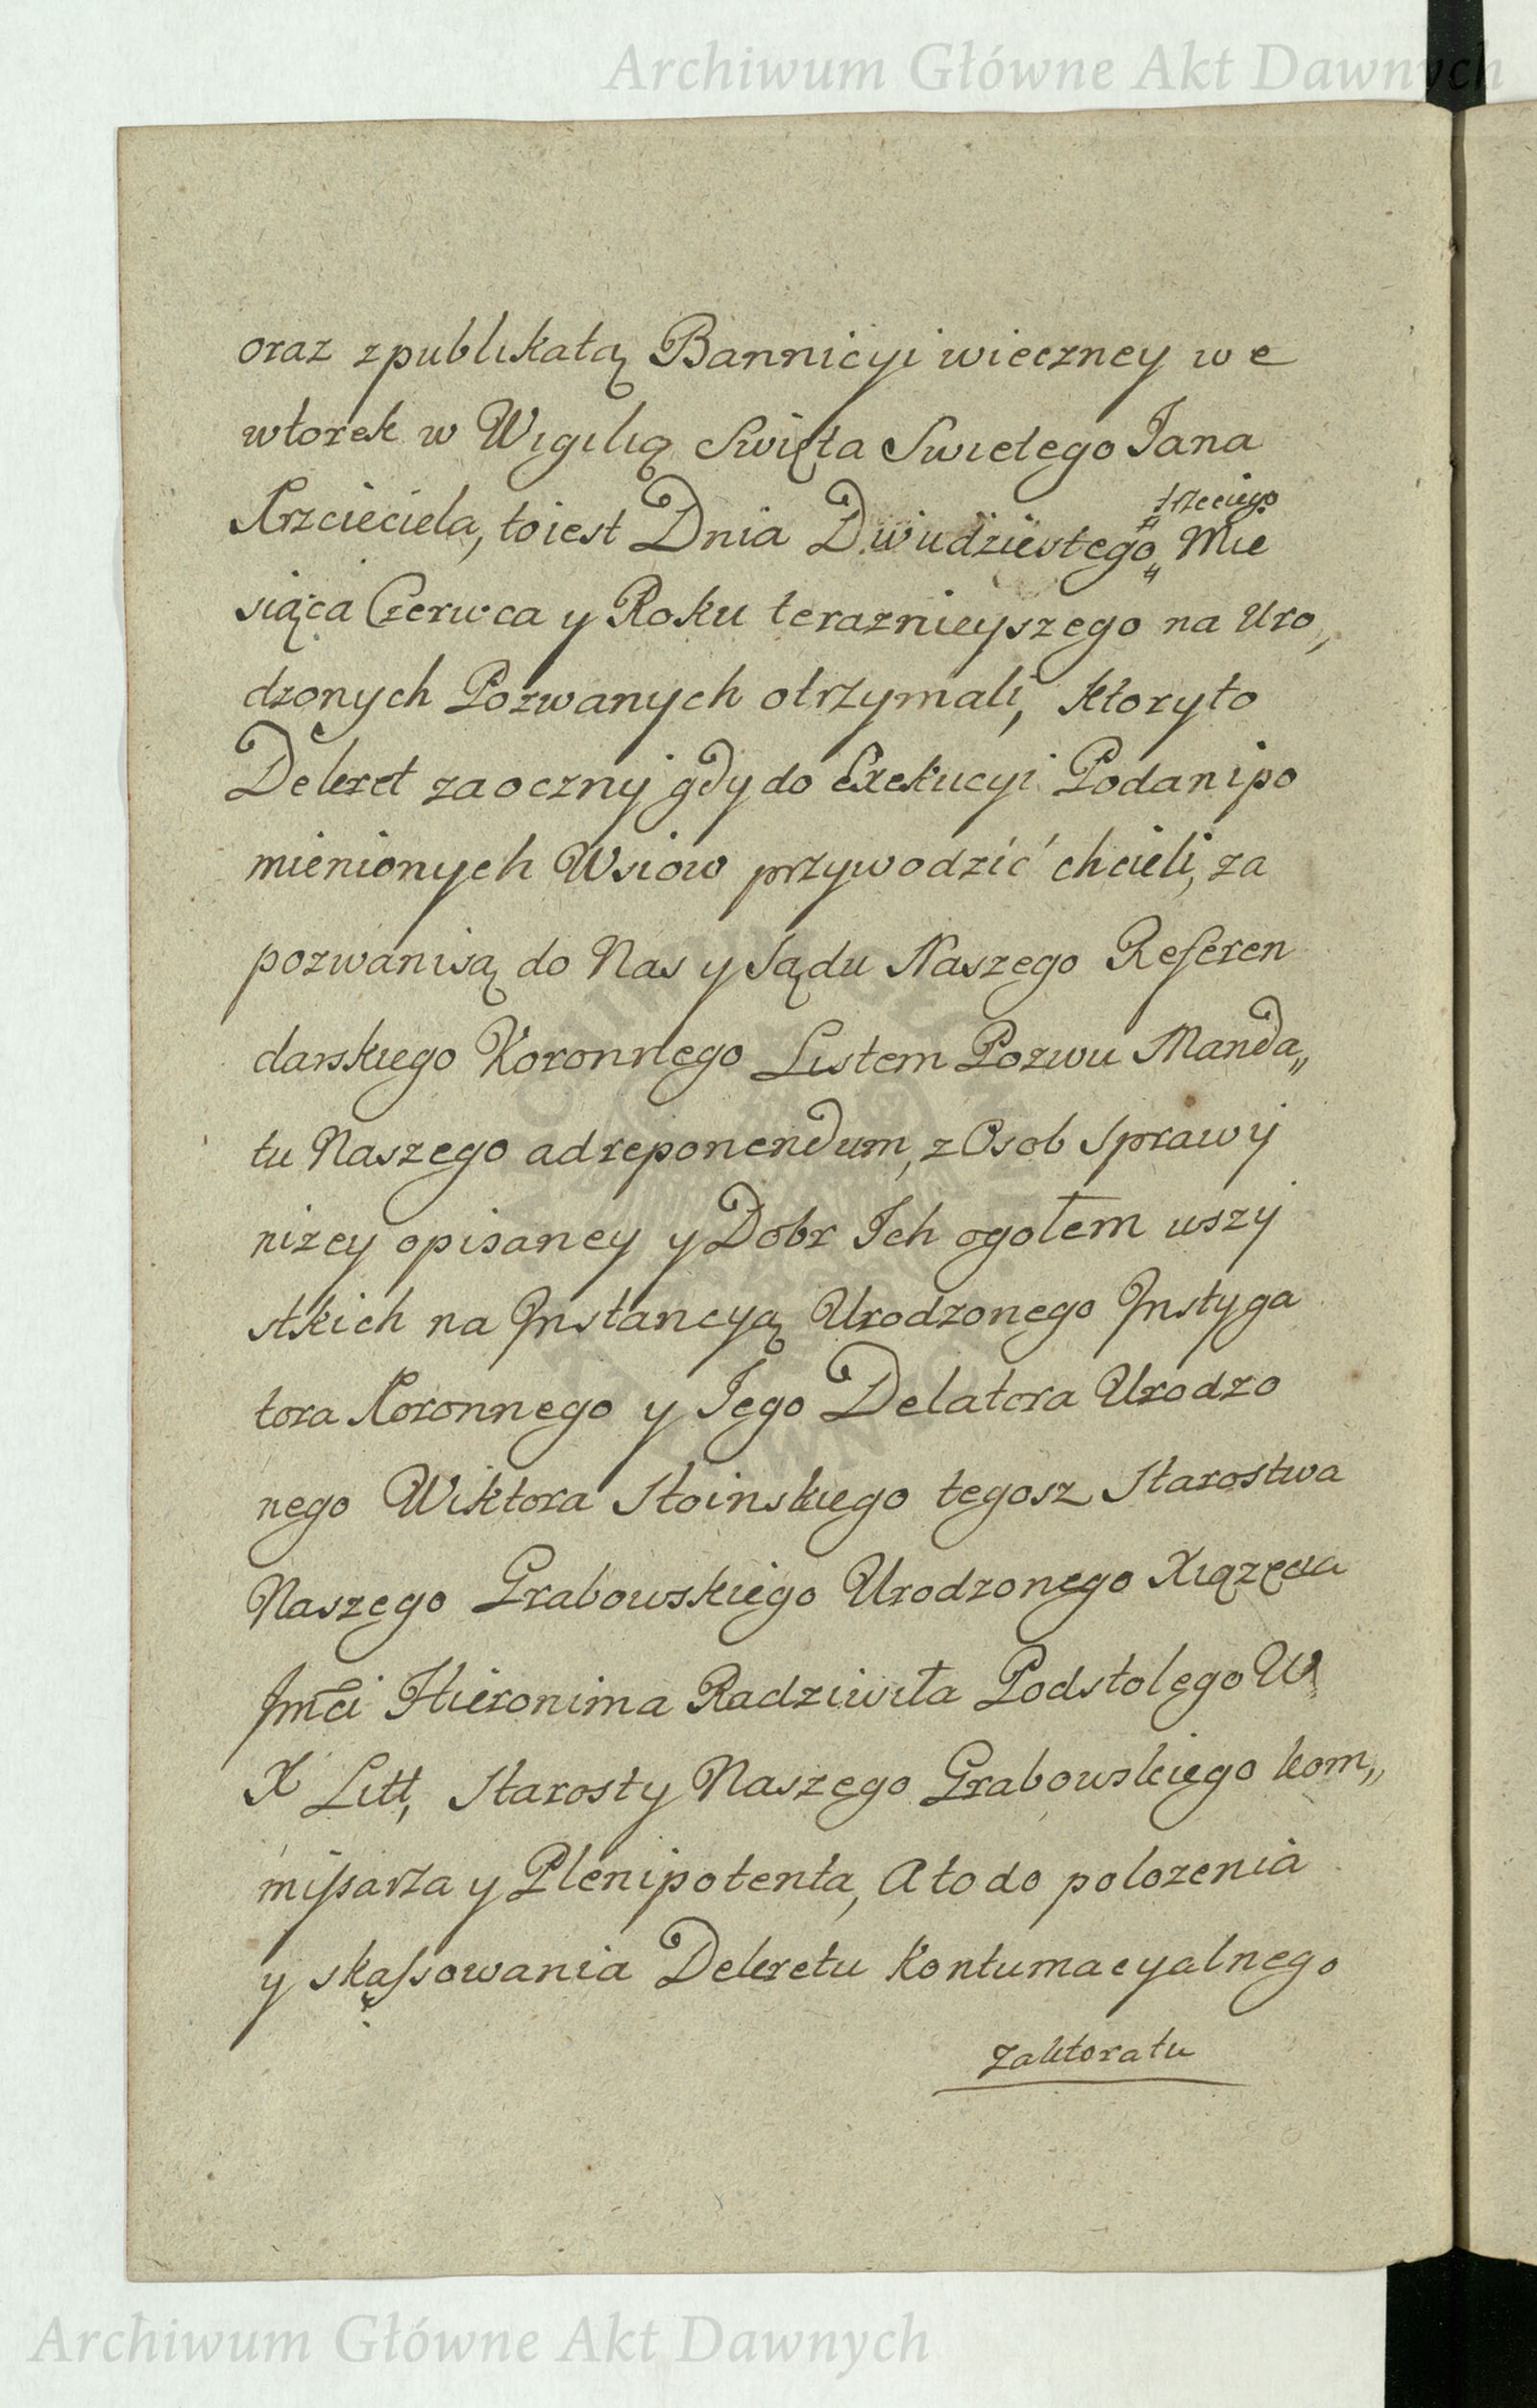 Archiwum Główne Akt Dawnych
oraz zpublikatą Bannicyi wieczney we
wtorek w Wigilią Swięta Swietego Jana
Krzcieciela, toiest Dnia Dwudziestego trzeciego Mie
siąca Czerwca y Roku teraznieyszego na Uro,
dzonych Pozwanych otrzymali, ktoryto
Dekret zaoczny gdy do Exekucyi Podani po
mienionych Wsiow przywodzić chcieli, za
pozwani są do Nas y Sądu Naszego Referen
darskiego Koronnego Listem Pozwu Manda„
tu Naszego adreponendum, z Osob Sprawy
nizey opisaney y Dobr Ich ogołem wszy
stkich na Instancyą Urodzonego Instyga
tora Koronnego y Jego Delatora Urodzo
nego Wiktora Stoinskiego tegosz Starostwa
Naszego Grabowskiego Urodzonego Xiązęcia
Jmći Hieronima Radziwiła Podstolego W
X Litt, Starosty Naszego Grabowskiego kom„
missarza y Plenipotenta, A to do polozenia
y skassowania Dekretu Kontumacyalnego
zaktoratu
Archiwum Główne Akt Dawnych